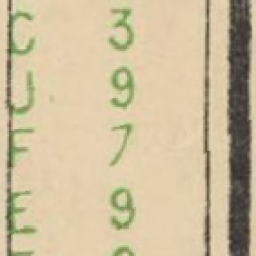 C 3
J 9
F 7
E 9